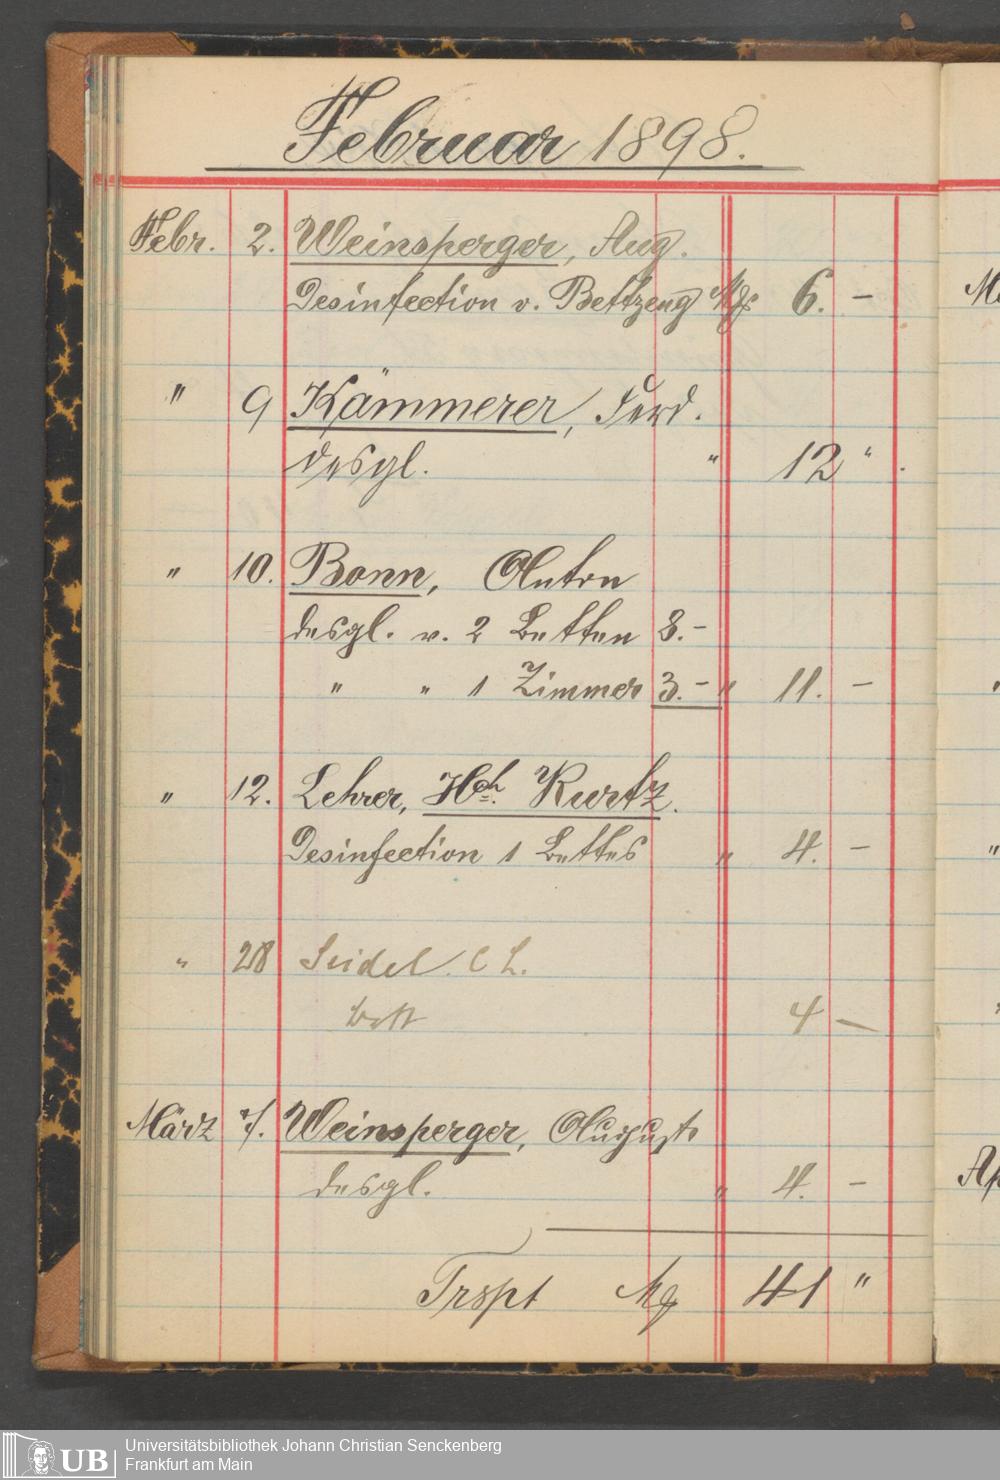 Februar 1898.
Febr. 2. Weinsperger, Aug.
Desinfection v. Bettzeug Mk 6. –
" 9 Kämmerer, Ferd.
desgl. " 12 "
" 10. Bonn, Anton
desgl. v. 2 Betten 8.–
" " 1 Zimmer 3.– " 11. –
" 12. Lehrer, Hch. Kurtz.
Desinfection 1 Bettes " 4. –
" 28 Seidel. C L.
Bett 4 –
März 7. Weinsperger, August
desgl. " 4. –
Trspt Mk 41 "
UB
Universitätsbibliothek Johann Christian Senckenberg
Frankfurt am Main